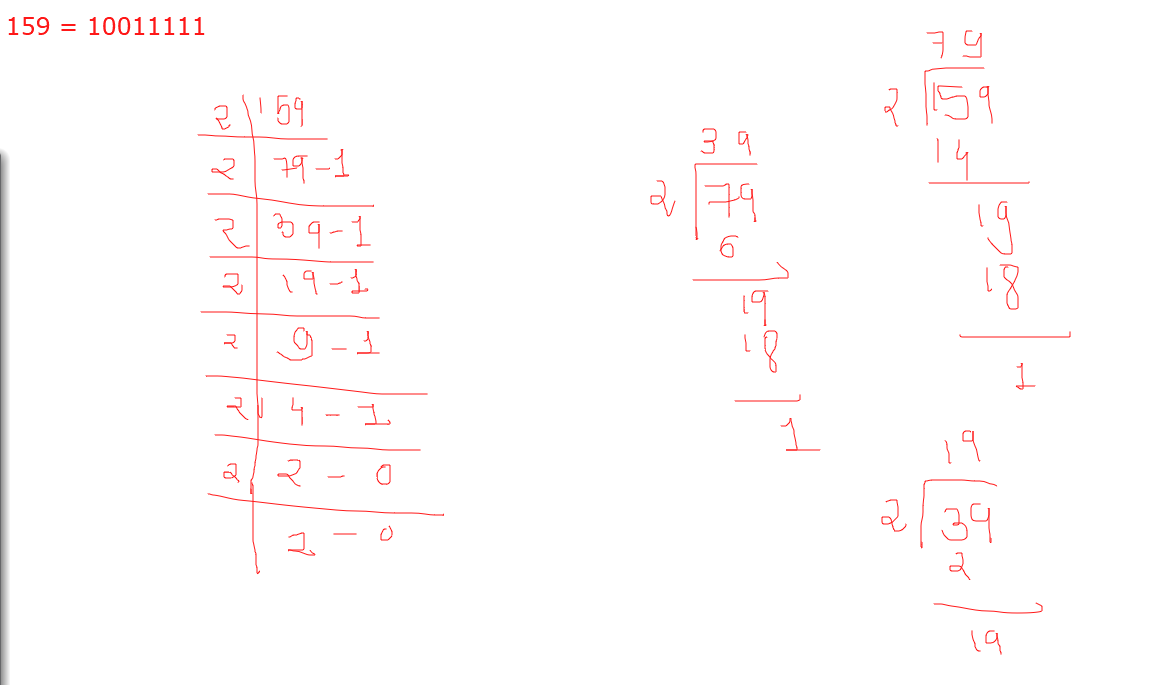 159 = 10011111
2 159
2 79 - 1
2 39 - 1
2 19 - 1
2 9 - 1
2 4 - 1
2 2 - 0
1 - 0
39
2 79
6
19
18
1
79
2 159
14
19
18
1
19
2 39
2
19